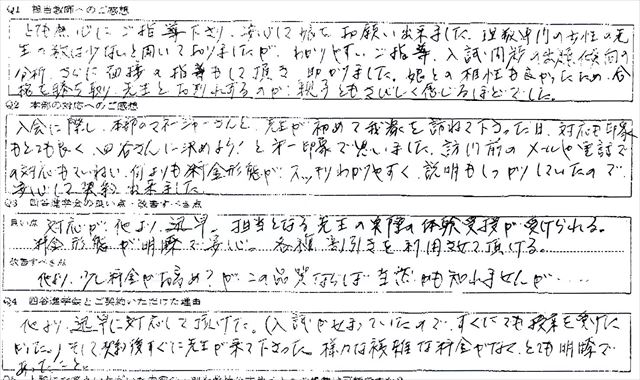 Q1 担当教師へのご感想
とても熱心にご指導下さり、安心して娘をお願い出来ました。理数専門の女性の先
生の数は少ないと聞いておりましたが、わかりやすいご指導、入試問題の出題傾向の
分析、さらに面接の指導もして頂き、助かりました。娘との相性も良かったため、合
格を勝ち取り、先生とお別れするのが、親子ともさびしく感じるほどでした。
Q2 本部の対応へのご感想
入会に際し、本部のマネージャーさんと、先生が初めて我家を訪ねて下さった日、対応も印象
もとても良く、四谷さんに決めよう!と第一印象で思いました。訪問前のメールや電話で
の対応もていねい、何よりも料金形態が、スッキリわかりやすく、説明もしっかりしていたので
安心して契約出来ました。
Q3 四谷進学会の良い点・改善すべき点
良い点 対応が、他より、迅早。担当となる先生の実際の体験受授が受けられる。
料金形態が明瞭で安心。各種割引きを利用させて頂ける。
改善すべき点
他より、少し料金がお高め?が、この品質ならば当然かも知れませんが、・・・・
Q4 四谷進学会とご契約いただけた理由
他より、迅早に対応して頂けた。(入試がせまっていたので、すぐにでも授業を受けた
かった。)そして契約後すぐに先生が来て下さった。様々な複雑な料金がなく、とても明瞭で
あったこと。